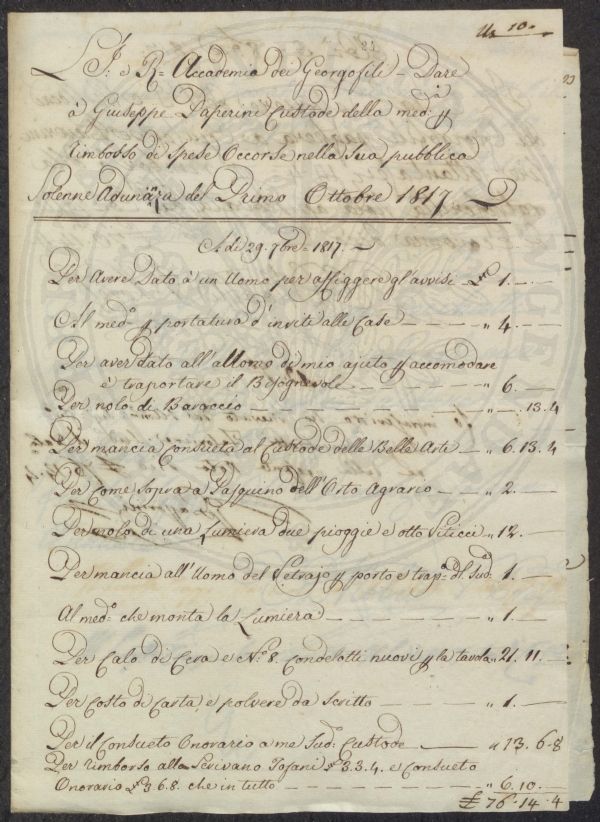 N. 10.
L'I: e R: Accademia dei Georgofili - Dare
à Giuseppe Paperini Custode della med:ª p
rimborso di spese Occorse nella Sua pubblica
Solenne Adunanza del Primo Ottobre 1817
A dì 29. 7bre 1817.
Per Avere Dato à un Uomo per affiggere gl'avvisi - £ 1. —
Al med:º p portatura d'inviti alle Case — " 4. —
Per aver dato all'altro Uomo di mio ajuto p accomodare
è traportare il Bisognevole — " 6. —
Per nolo di Baroccio — " — .13.4
Per mancia Consueta al Custode delle Belle Arti — " 6.13.4
Per Come Sopra a Pasquino dell'Orto Agrario — " 2. —
Per nolo di una Lumiera due pioggie e otto Viticci " 12. —
Per mancia all'Uomo del Petrajo p porto e trap:º d:l Sud:º " 1. —
Al med:º che monta la Lumiera — " 1. —
Per Calo di Cera e N.º 8. Condelotti nuovi p la tavola " 21. 11. —
Per Costo di Carta e polvere da Scritto — " 1. —
Per il Consueto Onorario a me Sud:º Custode — " 13. 6.8
Per rimborso allo Scrivano Tofani £ 3.3.4. e Consueto
Onorario £ 3.6.8. che in tutto — " 6.10. —
£ 76.14.4